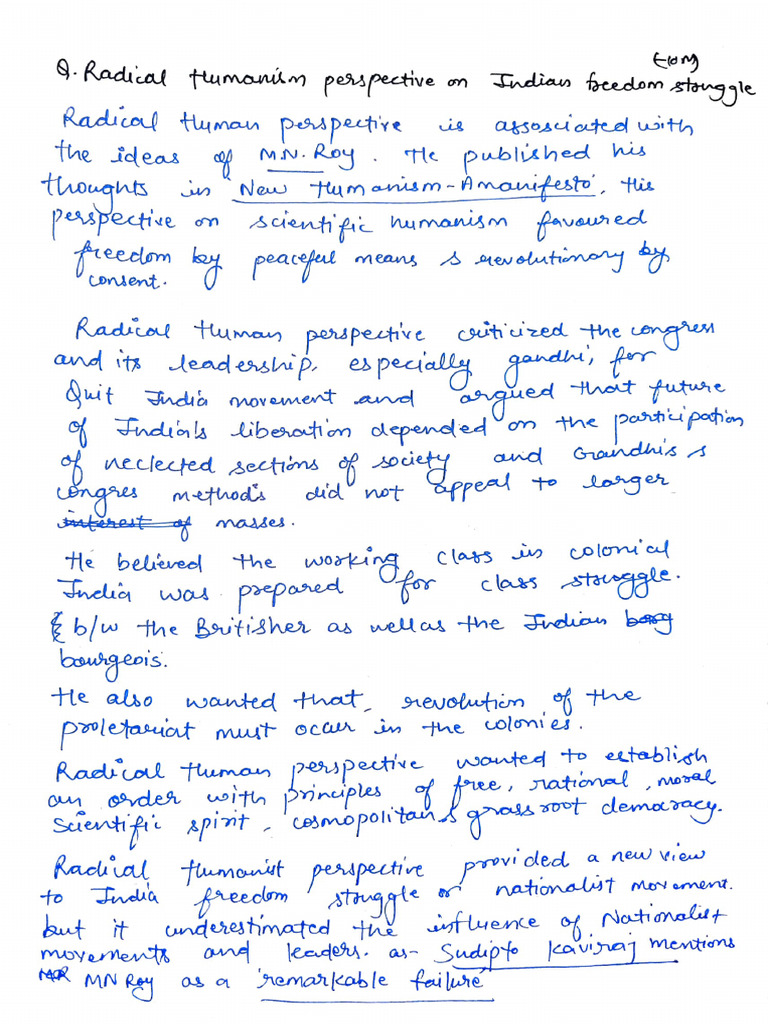 (10M)
Q. Radical Humanism perspective on Indian freedom struggle
Radical Human perspective is assosciated with
the ideas of M.N. Roy. He published his
thoughts in 'New Humanism - A manifesto', His
perspective on scientific humanism favoured
freedom by peaceful means & revolutionary by
consent.
Radical Human perspective criticized the congress
and its leadership, especially gandhi, for
Quit India movement and argued that future
of Indian's liberation depended on the participation
of neclected sections of society and Gandhi's &
congres method's did not appeal to larger
interest of masses.
He believed the working class in colonial
India was prepared for class struggle.
& b/w the Britisher as well as the Indian borg
bourgeois.
He also wanted that, revolution of the
proletariat must occur in the colonies.
Radical Human perspective wanted to establish
an order with principles of free, rational, moral
scientific spirit, cosmopolitan & grassroot demaracy.
Radical Humanist perspective provided a new view
to India freedom struggle or nationalist movement.
but it underestimated the influence of Nationalist
movements and leaders. as - Sudipto Kaviraj mentions
MN Roy as a 'remarkable failure'